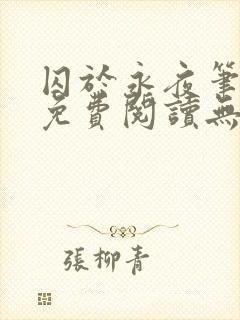 囚於永夜筆
免費閱讀無
張柳青